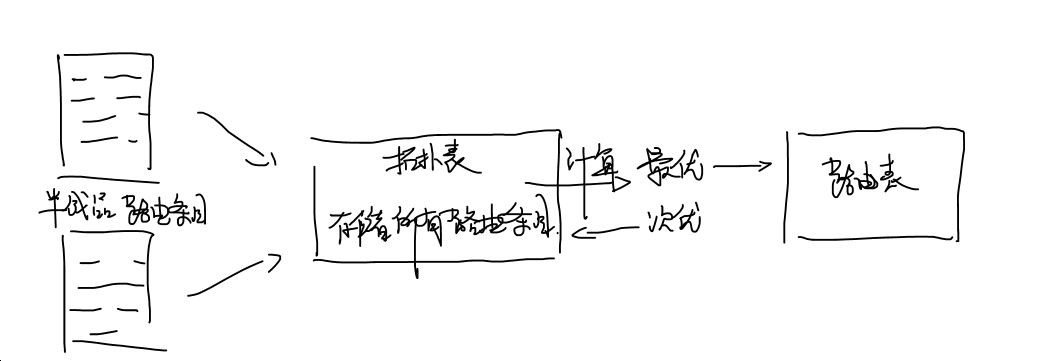 半成品路由条目
拓扑表
存储所有路由条目.
计算
最优
次优
路由表